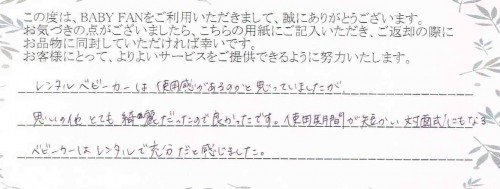 この度は、BABY FANをご利用いただきまして、誠にありがとうございます。
お気づきの点がございましたら、こちらの用紙にご記入いただき、ご返却の際に
お品物に同封していただければ幸いです。
お客様にとって、よりよいサービスをご提供できるように努力いたします。
レンタルベビーカーは使用感があるのかと思っていましたが、
思いの他とても綺麗だったので良かったです。使用期間が短かい対面式にもなる
ベビーカーはレンタルで充分だと感じました。